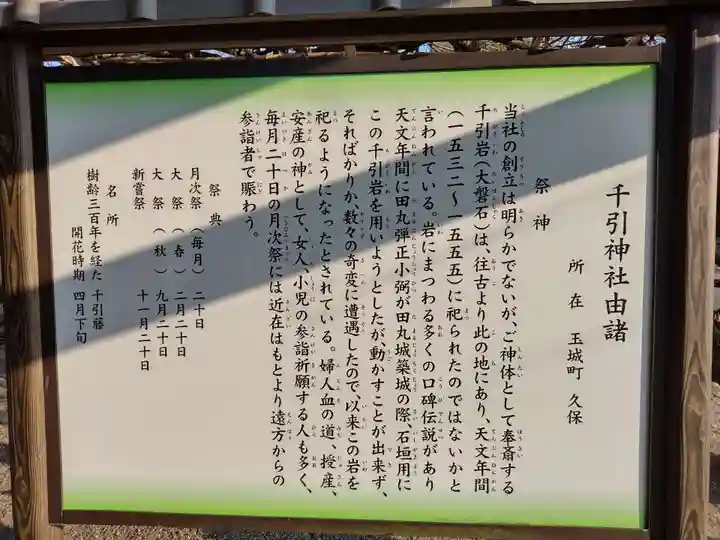 千引神社由諸
所在 玉城町 久保
祭神
当社の創立は明らかでないが、ご神体として奉斎する
千引岩(大磐石)は、往古より此の地にあり、天文年間
(一五三二~一五五五)に祀られたのではないかと
言われている。岩にまつわる多くの口碑伝説があり
天文年間に田丸弾正小弼が田丸城築城の際、石垣用に
この千引岩を用いようとしたが、動かすことが出来ず、
そればかりか、数々の奇変に遭遇したので、以来この岩を
祀るようになったとされている。婦人血の道、授産、
安産の神として、女人、小児の参詣祈願する人も多く、
毎月二十日の月次祭には近在はもとより遠方からの
参詣者で賑わう。
祭典
月次祭(毎月)二十日
大祭(春)二月二十日
大祭(秋)九月二十日
新嘗祭 十一月二十日
名所
樹齢三百年を経た 千引藤
開花時期 四月下旬